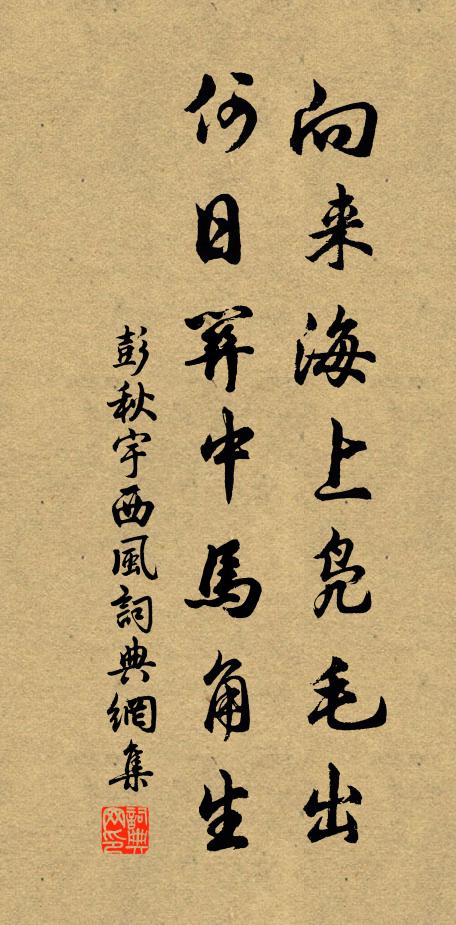 向来海上凫毛出
何日關中馬角生
彭秋宇西風詞典網集
詞典
网印